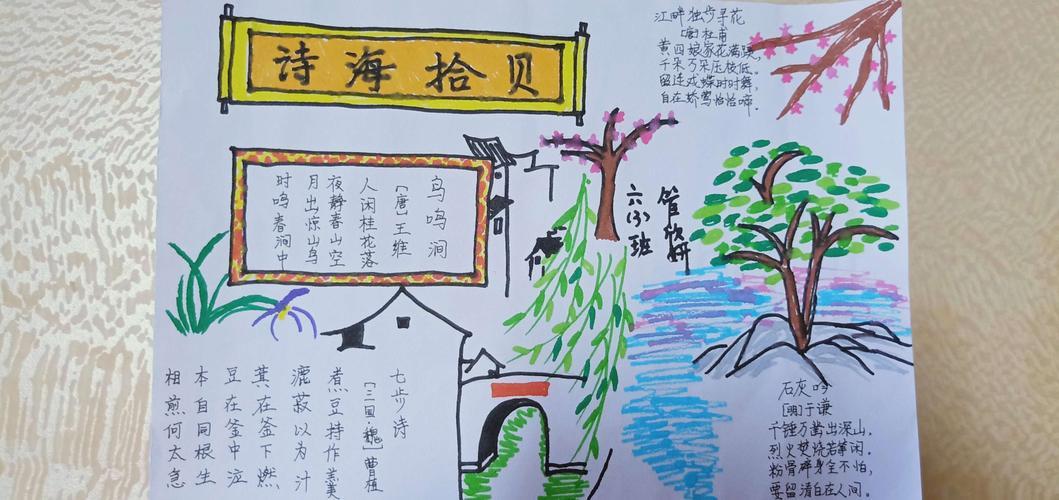 诗海拾贝
江畔独步寻花
[唐]杜甫
黄四娘家花满蹊,
千朵万朵压枝低。
留连戏蝶时时舞,
自在娇莺恰恰啼。
鸟鸣涧
[唐]王维
人闲桂花落
夜静春山空
月出惊山鸟
时鸣春涧中
六(3)班
管欣妍
七步诗
[三国·魏]曹植
煮豆持作羹
漉菽以为汁
萁在釜下燃
豆在釜中泣
本自同根生
相煎何太急
石灰吟
[明]于谦
千锤万凿出深山,
烈火焚烧若等闲。
粉骨碎身全不怕,
要留清白在人间。